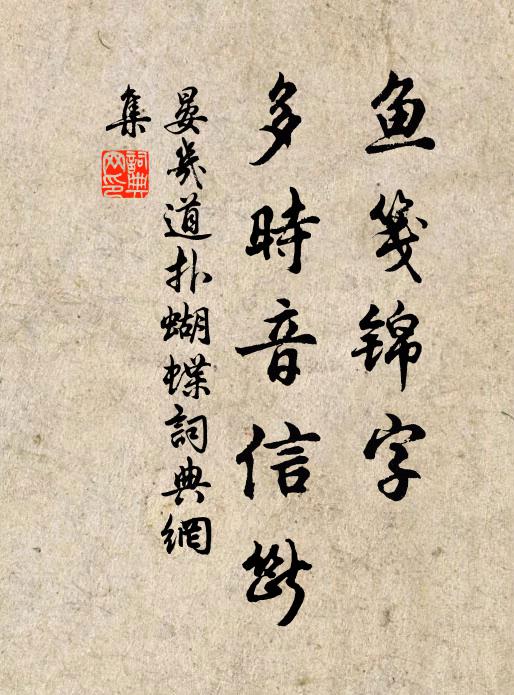 鱼笺锦字
多時音信断
晏幾道扑蝴蝶詞典網
集
詞典
网印